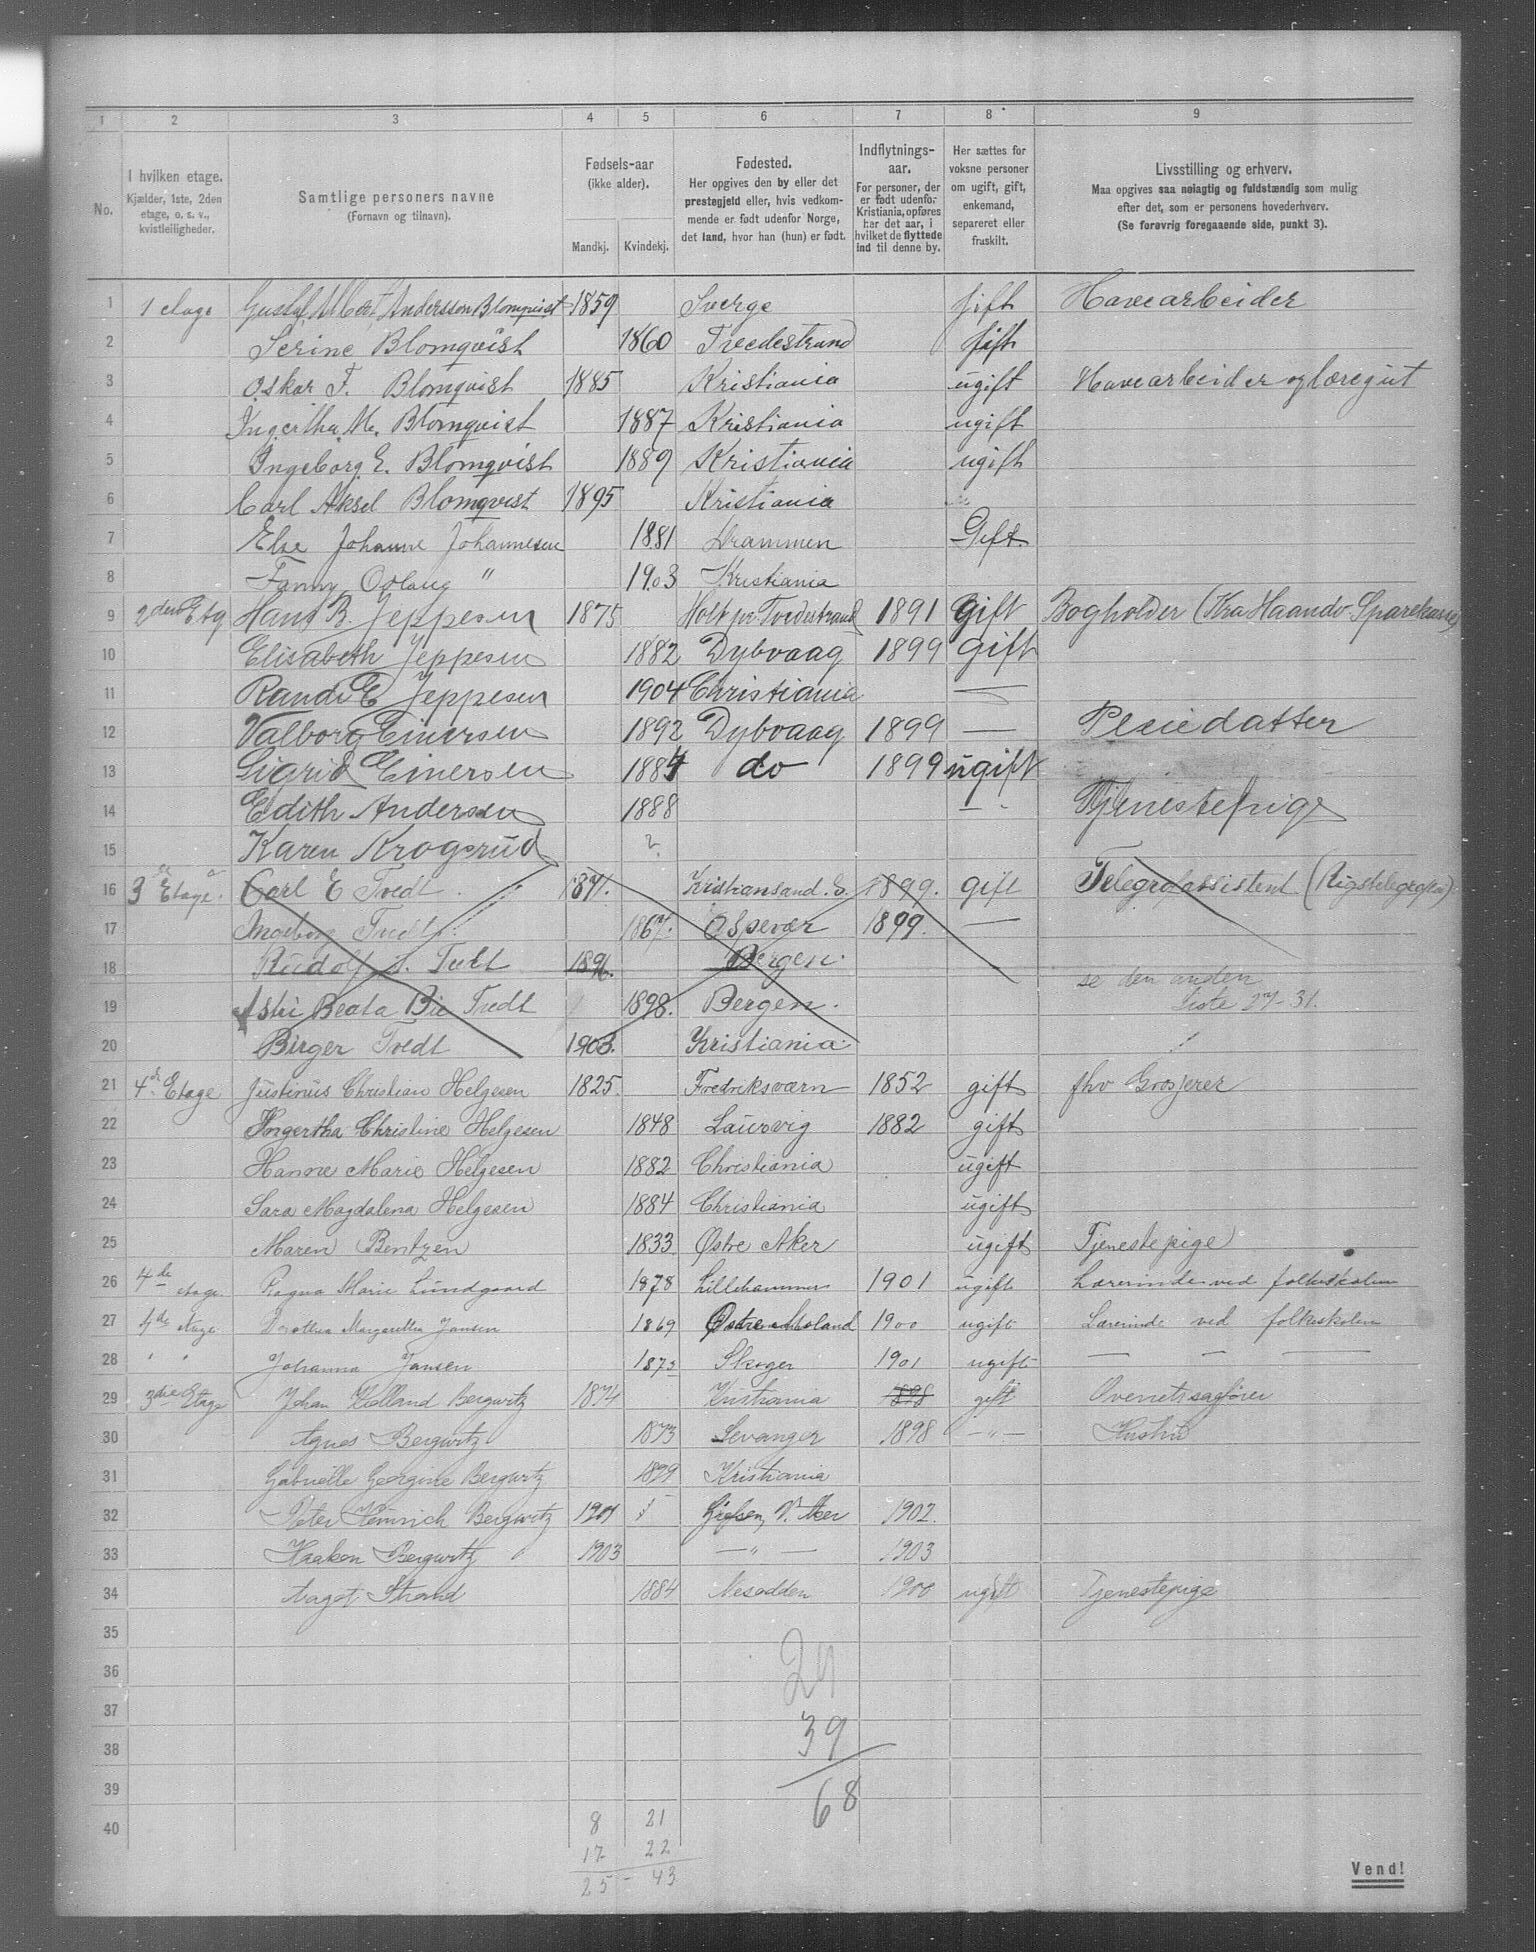 1 2 3 4 5 6 7 8 9
No. I hvilken etage. Kjælder, 1ste, 2den etage, o. s. v., kvistleiligheder. Samtlige personers navne (Fornavn og tilnavn). Fødsels-aar (ikke alder). Mandkj. Kvindekj. Fødested. Her opgives den by eller det prestegjeld eller, hvis vedkommende er født udenfor Norge, det land, hvor han (hun) er født. Indflytningsaar. For personer, der er født udenfor Kristiania, opføres her det aar, i hvilket de flyttede ind til denne by. Her sættes for voksne personer om ugift, gift, enkemand, separeret eller fraskilt. Livsstilling og erhverv. Maa opgives saa nøiagtig og fuldstændig som mulig efter det, som er personens hovederhverv. (Se forøvrig foregaaende side, punkt 3).
1 1 etage Gustaf Albert Andersson Blomqvist 1859 Sverge gift Havearbeider
2 Serine Blomqvist 1860 Tvedestrand gift
3 Oskar F. Blomqvist 1885 Kristiania ugift Havearbeider og læregut
4 Ingertha M. Blomqvist 1887 Kristiania ugift
5 Ingeborg E. Blomqvist 1889 Kristiania ugift
6 Carl Aksel Blomqvist 1895 Kristiania
7 Else Johanne Johannesen 1881 Drammen Gift
8 Fanny Oolaug " 1903 Kristiania
9 2den Etg Hans B. Jeppesen 1875 Holt pr Tvedestrand 1891 Gift Bogholder (Kra Haandv. Sparekasse)
10 Elisabeth Jeppesen 1882 Dybvaag 1899 Gift
11 Randi E Jeppesen 1904 Christiania —
12 Valborg Einersen 1892 Dybvaag 1899 — Pleiedatter
13 Sigrid Einersen 1884 do 1899 ugift
14 Edith Andersen 1888 — Tjenestepige
15 Karen Krogsrud ?
16 3 Etage. Carl E Tvedt 1871. Kristiansand. S. 1899. gift Telegrafassistent (Rigstelegrafen)
17 Ingeborg Tvedt 1867. Espevær 1899. —
18 Rudolf S. Tvedt 1896. Bergen.
19 Astri Beata Bie Tvedt 1898. Bergen. se den anden liste 27-31.
20 Birger Tvedt 1903. Kristiania
21 4de Etage Justinus Christian Helgesen 1825. Fredriksværn 1852 gift fhv Grosserer
22 Ingertha Christine Helgesen 1848 Laurvig 1882 gift
23 Hanne Marie Helgesen 1882 Christiania ugift
24 Sara Magdalena Helgesen 1884 Christiania ugift
25 Maren Bentzen 1833 Østre Aker ugift Tjenestepige
26 4de etage Ragna Marie Lundgaard 1878 Lillehammer 1901 ugift Lærerinde ved folkeskolen
27 4de etage Dorothea Margaretha Jansen 1869 Østre Moland 1900 ugift Lærerinde ved folkeskolen
28 " " Johanna Jansen 1873 Skoger 1901 ugift — — —
29 3die Etage Johan Kielland Bergwitz 1874 Kristiania 1898 gift Overretssagfører
30 Agnes Bergwitz 1873 Levanger 1898 — " — Hustru
31 Gabrielle Georgine Bergwitz 1899 Kristiania
32 Peter Heinrich Bergwitz 1901 V. Aker 1902.
33 Haakon Bergwitz 1903 — " — 1903
34 Aagot Strand 1884 Nesodden 1900 ugift Tjenestepige
35
36 29
37
38 39
39
40 68
8 21
17 22
25 - 43
Vend!